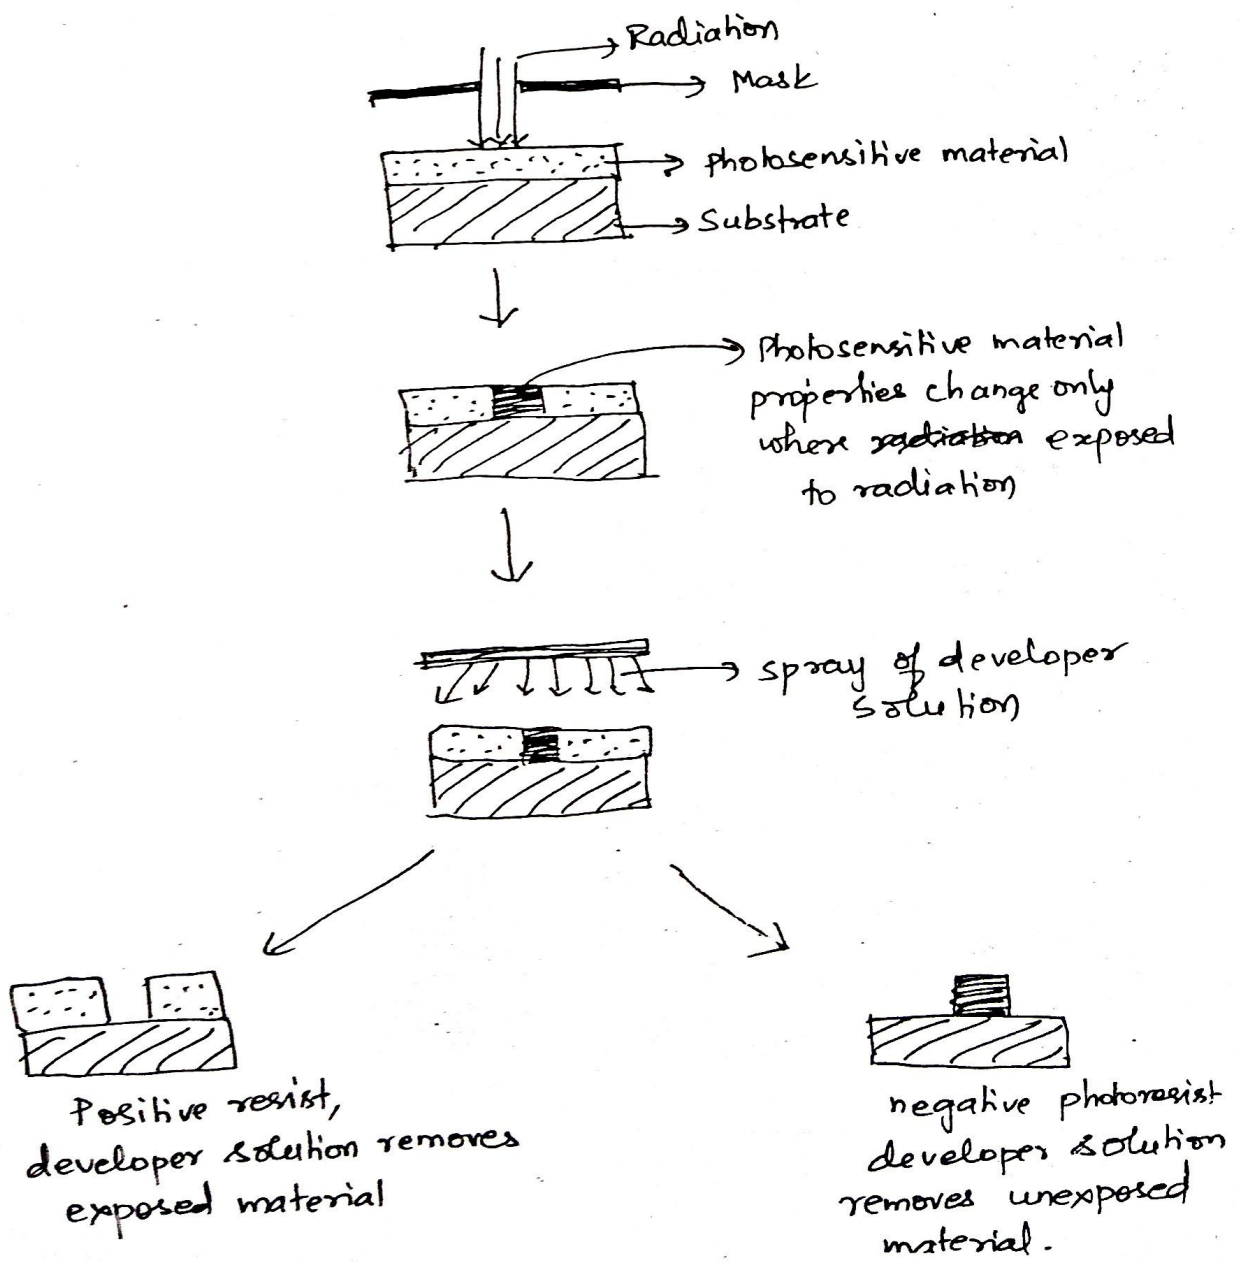 Radiation
Mask
photosensitive material
Substrate
Photosensitive material
properties change only
where radiation exposed
to radiation
spray of developer
solution
Positive resist,
developer solution removes
exposed material
negative photoresist
developer solution
removes unexposed
material.